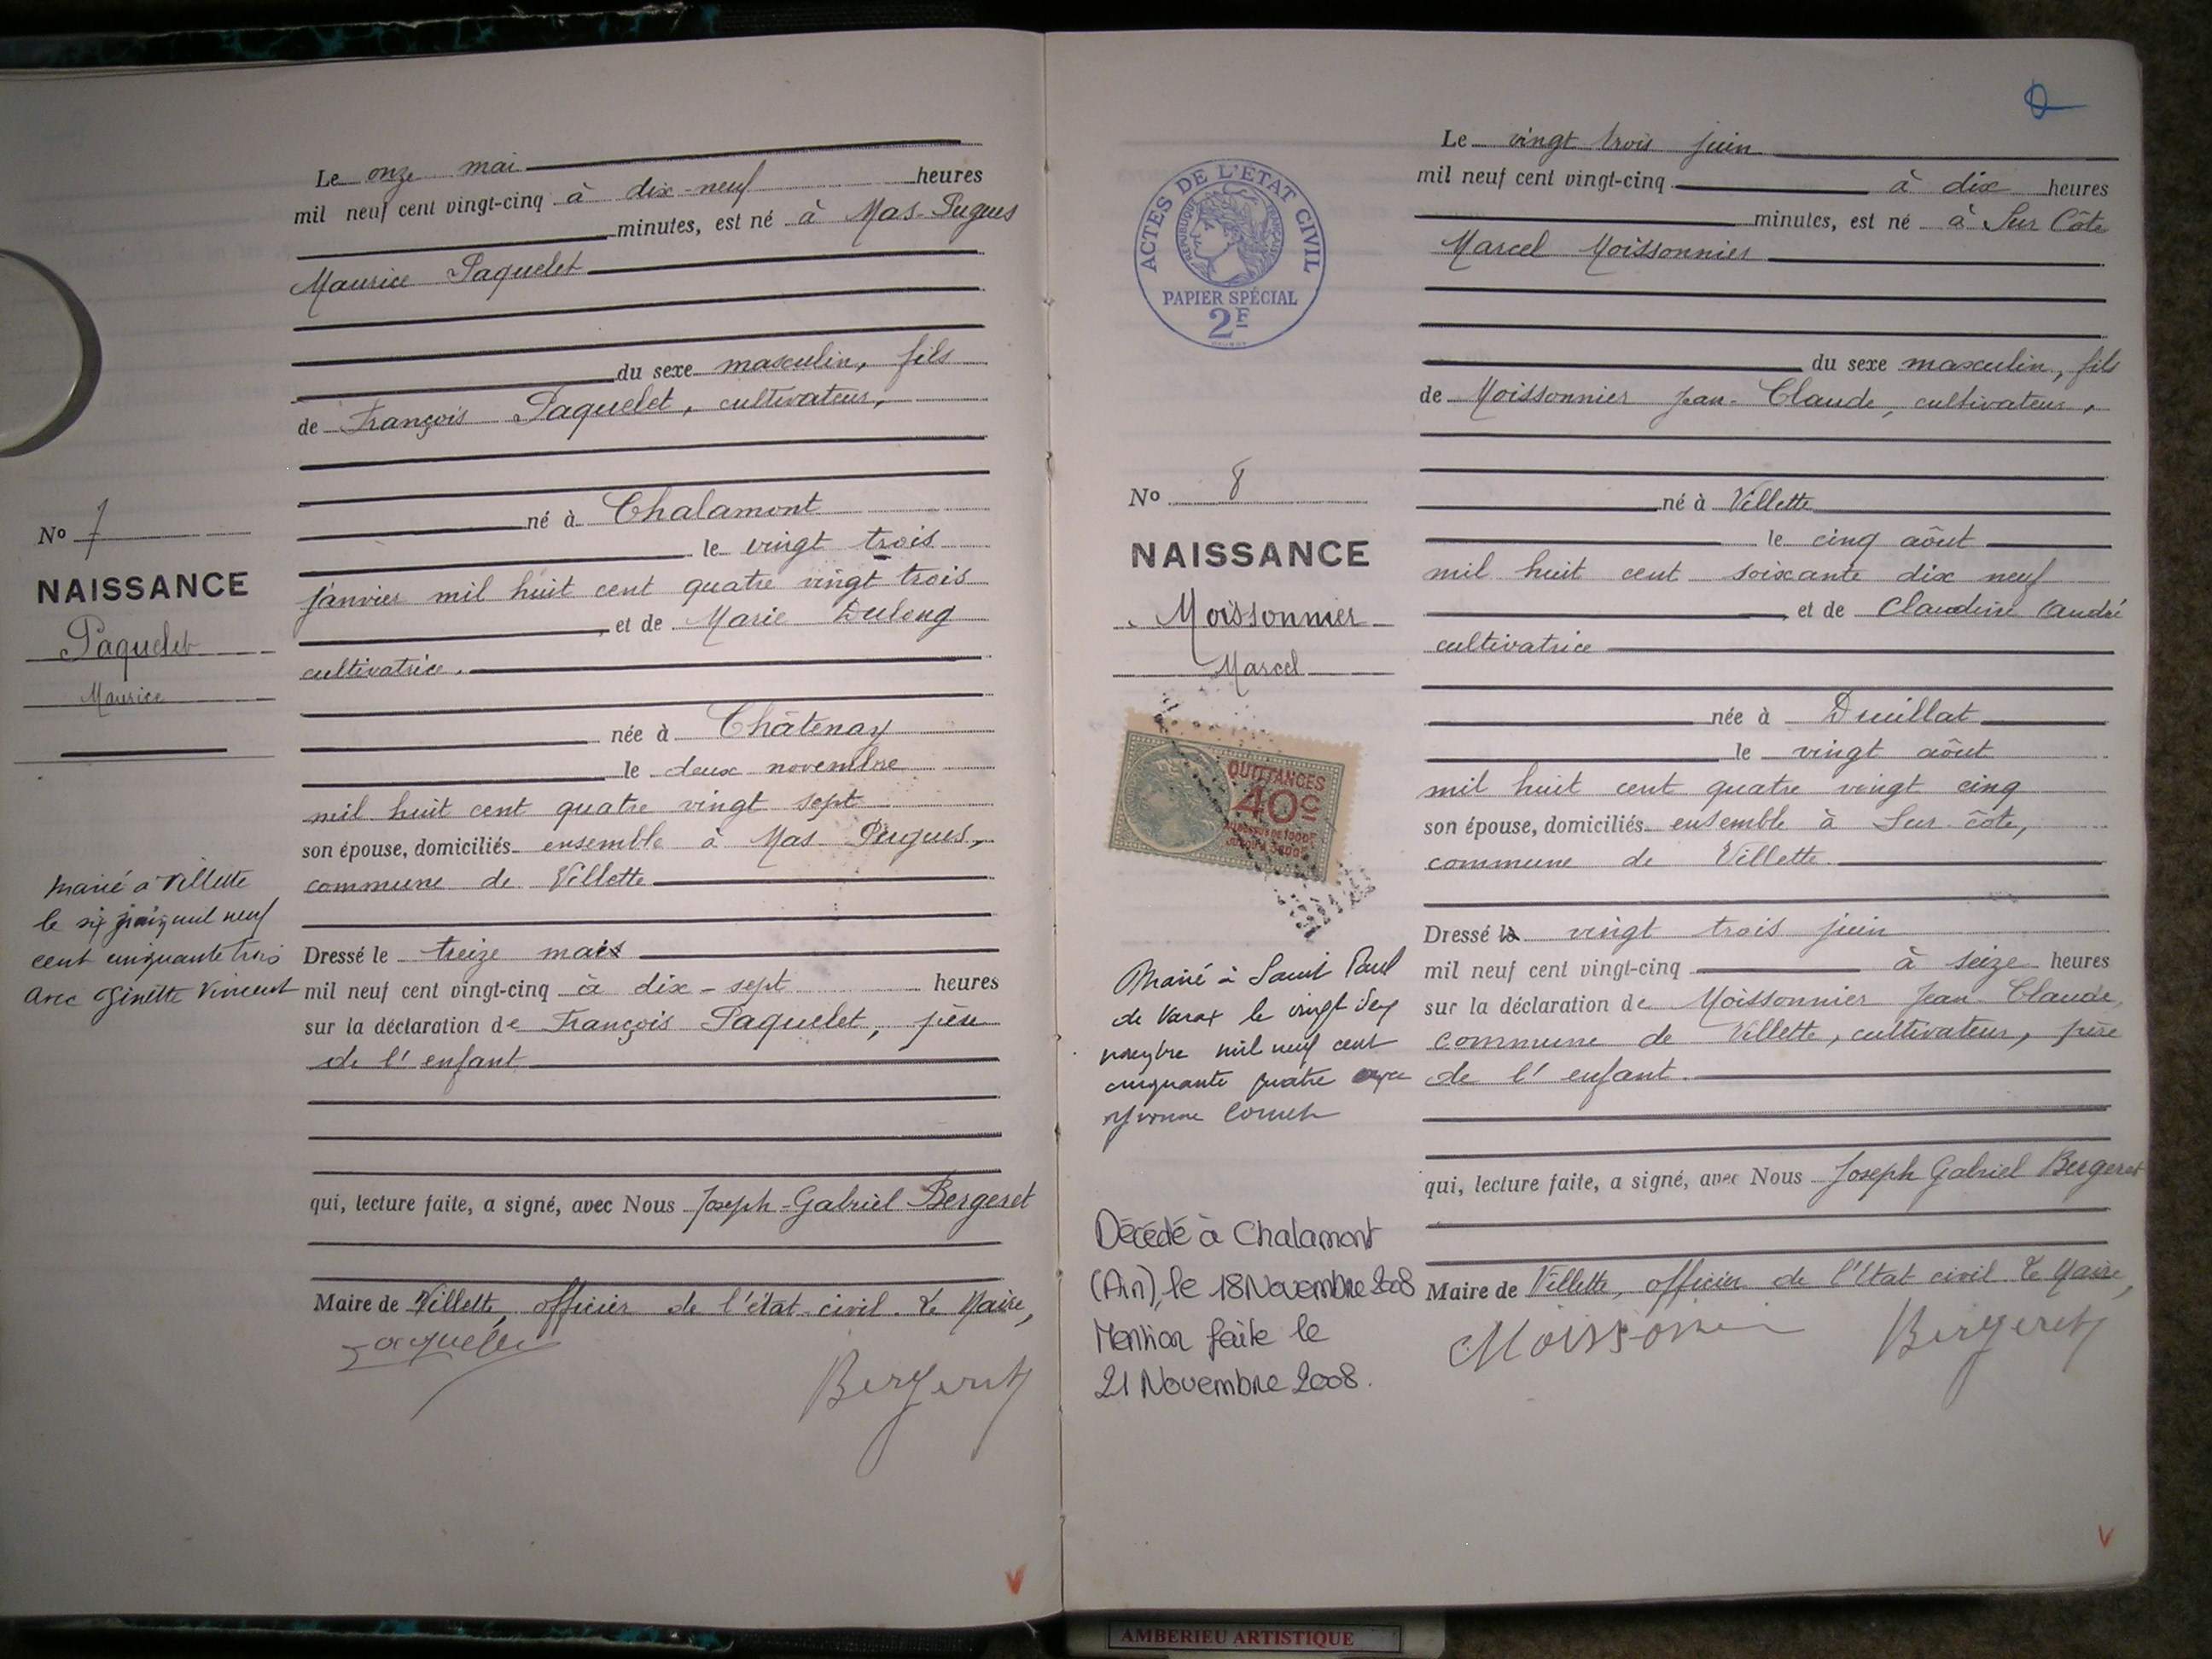 Le onze mai
mil neuf cent vingt-cinq à dix-neuf heures
minutes, est né à Mas-Pugues
Maurice Paquelet
du sexe masculin, fils
de François Paquelet, cultivateur,
né à Chalamont
le vingt trois
janvier mil huit cent quatre vingt trois
, et de Marie Dulong
cultivatrice.
née à Châtenay
le deux novembre
mil huit cent quatre vingt sept
son épouse, domiciliés ensemble à Mas Pugues,
commune de Villette
Dressé le treize mai
mil neuf cent vingt-cinq à dix-sept heures
sur la déclaration de François Paquelet, père
de l'enfant
qui, lecture faite, a signé, avec Nous Joseph-Gabriel Bergeret
Maire de Villette, officier de l'état-civil. Le Maire,
Paquelet
Bergeret
No 7
NAISSANCE
Paquelet
Maurice
Marié à Villette
le six mil neuf
cent cinquante trois
avec Ginette Vincent
Le vingt trois juin
mil neuf cent vingt-cinq à dix heures
minutes, est né à Sur Côte
Marcel Moissonnier
du sexe masculin, fils
de Moissonnier Jean-Claude, cultivateur,
né à Villette
le cinq aôut
mil huit cent soixante dix neuf
, et de Claudine
cultivatrice
née à Druillat
le vingt aôut
mil huit cent quatre vingt cinq
son épouse, domiciliés ensemble à Sur côte,
commune de Villette.
Dressé le vingt trois juin
mil neuf cent vingt-cinq à seize heures
sur la déclaration de Moissonnier Jean-Claude,
commune de Villette, cultivateur, père
de l'enfant.
qui, lecture faite, a signé, avec Nous Joseph Gabriel Bergeret
Maire de Villette, officier de l'Etat civil. Le Maire,
Moissonnier
Bergeret
ACTES DE L'ETAT CIVIL
REPUBLIQUE FRANÇAISE
PAPIER SPÉCIAL
2F
No 8
NAISSANCE
Moissonnier
Marcel
QUITTANCES
40c
Marié à Saint Paul
de Varax le vingt
novembre mil neuf cent
cinquante quatre avec
Yvonne Cornet
Décédé à Chalamont
(Ain), le 18 Novembre 2008
Mention faite le
21 Novembre 2008.
AMBERIEU ARTISTIQUE